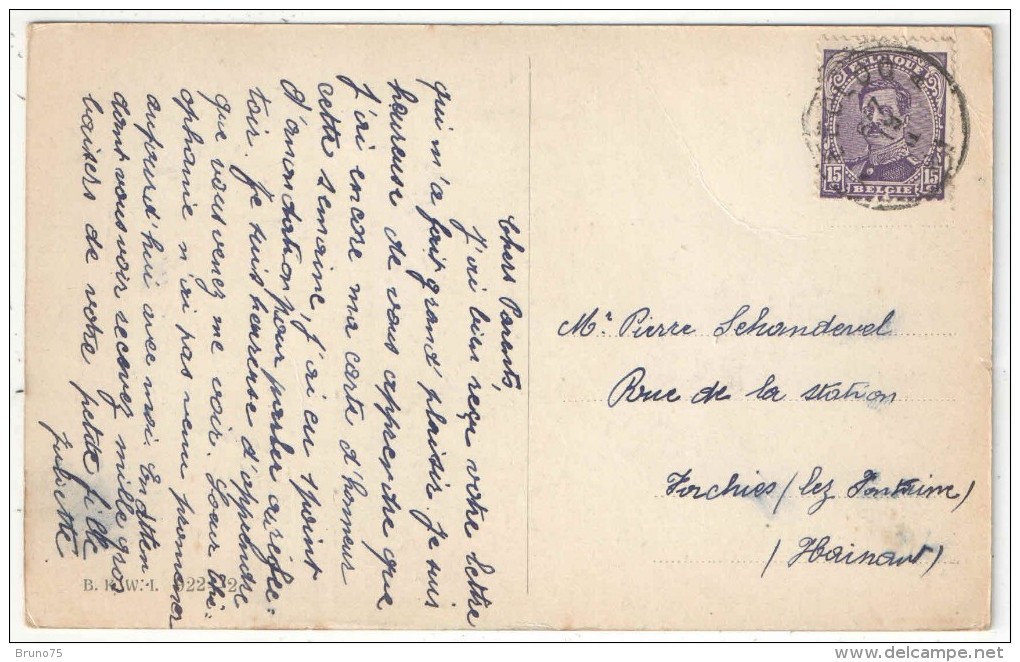 Chers Parents,
J'ai bien reçu votre lettre
qui m'a fait grand plaisir. Je suis
heureuse de vous apprendre que
j'ai encore ma carte d'honneur
cette semaine, j'ai eu 1 point
d'amondation pour parler au réfec=
toir. Je suis heureuse d'apprendre
que vous venez me voir. Soeur Thé-
ophanie n'ai pas venu promener
aujourd'hui avec moi. En atten
dont vous voir recevez mille gros
baisers de votre petite fille
Juliette
Mr Pierre Schandevel
Rue de la station
Forchies (lez Fontaine)
(Hainaut)
BELGIE
15
15
B. K. W. I.
Bruno75
www.delcampe.net